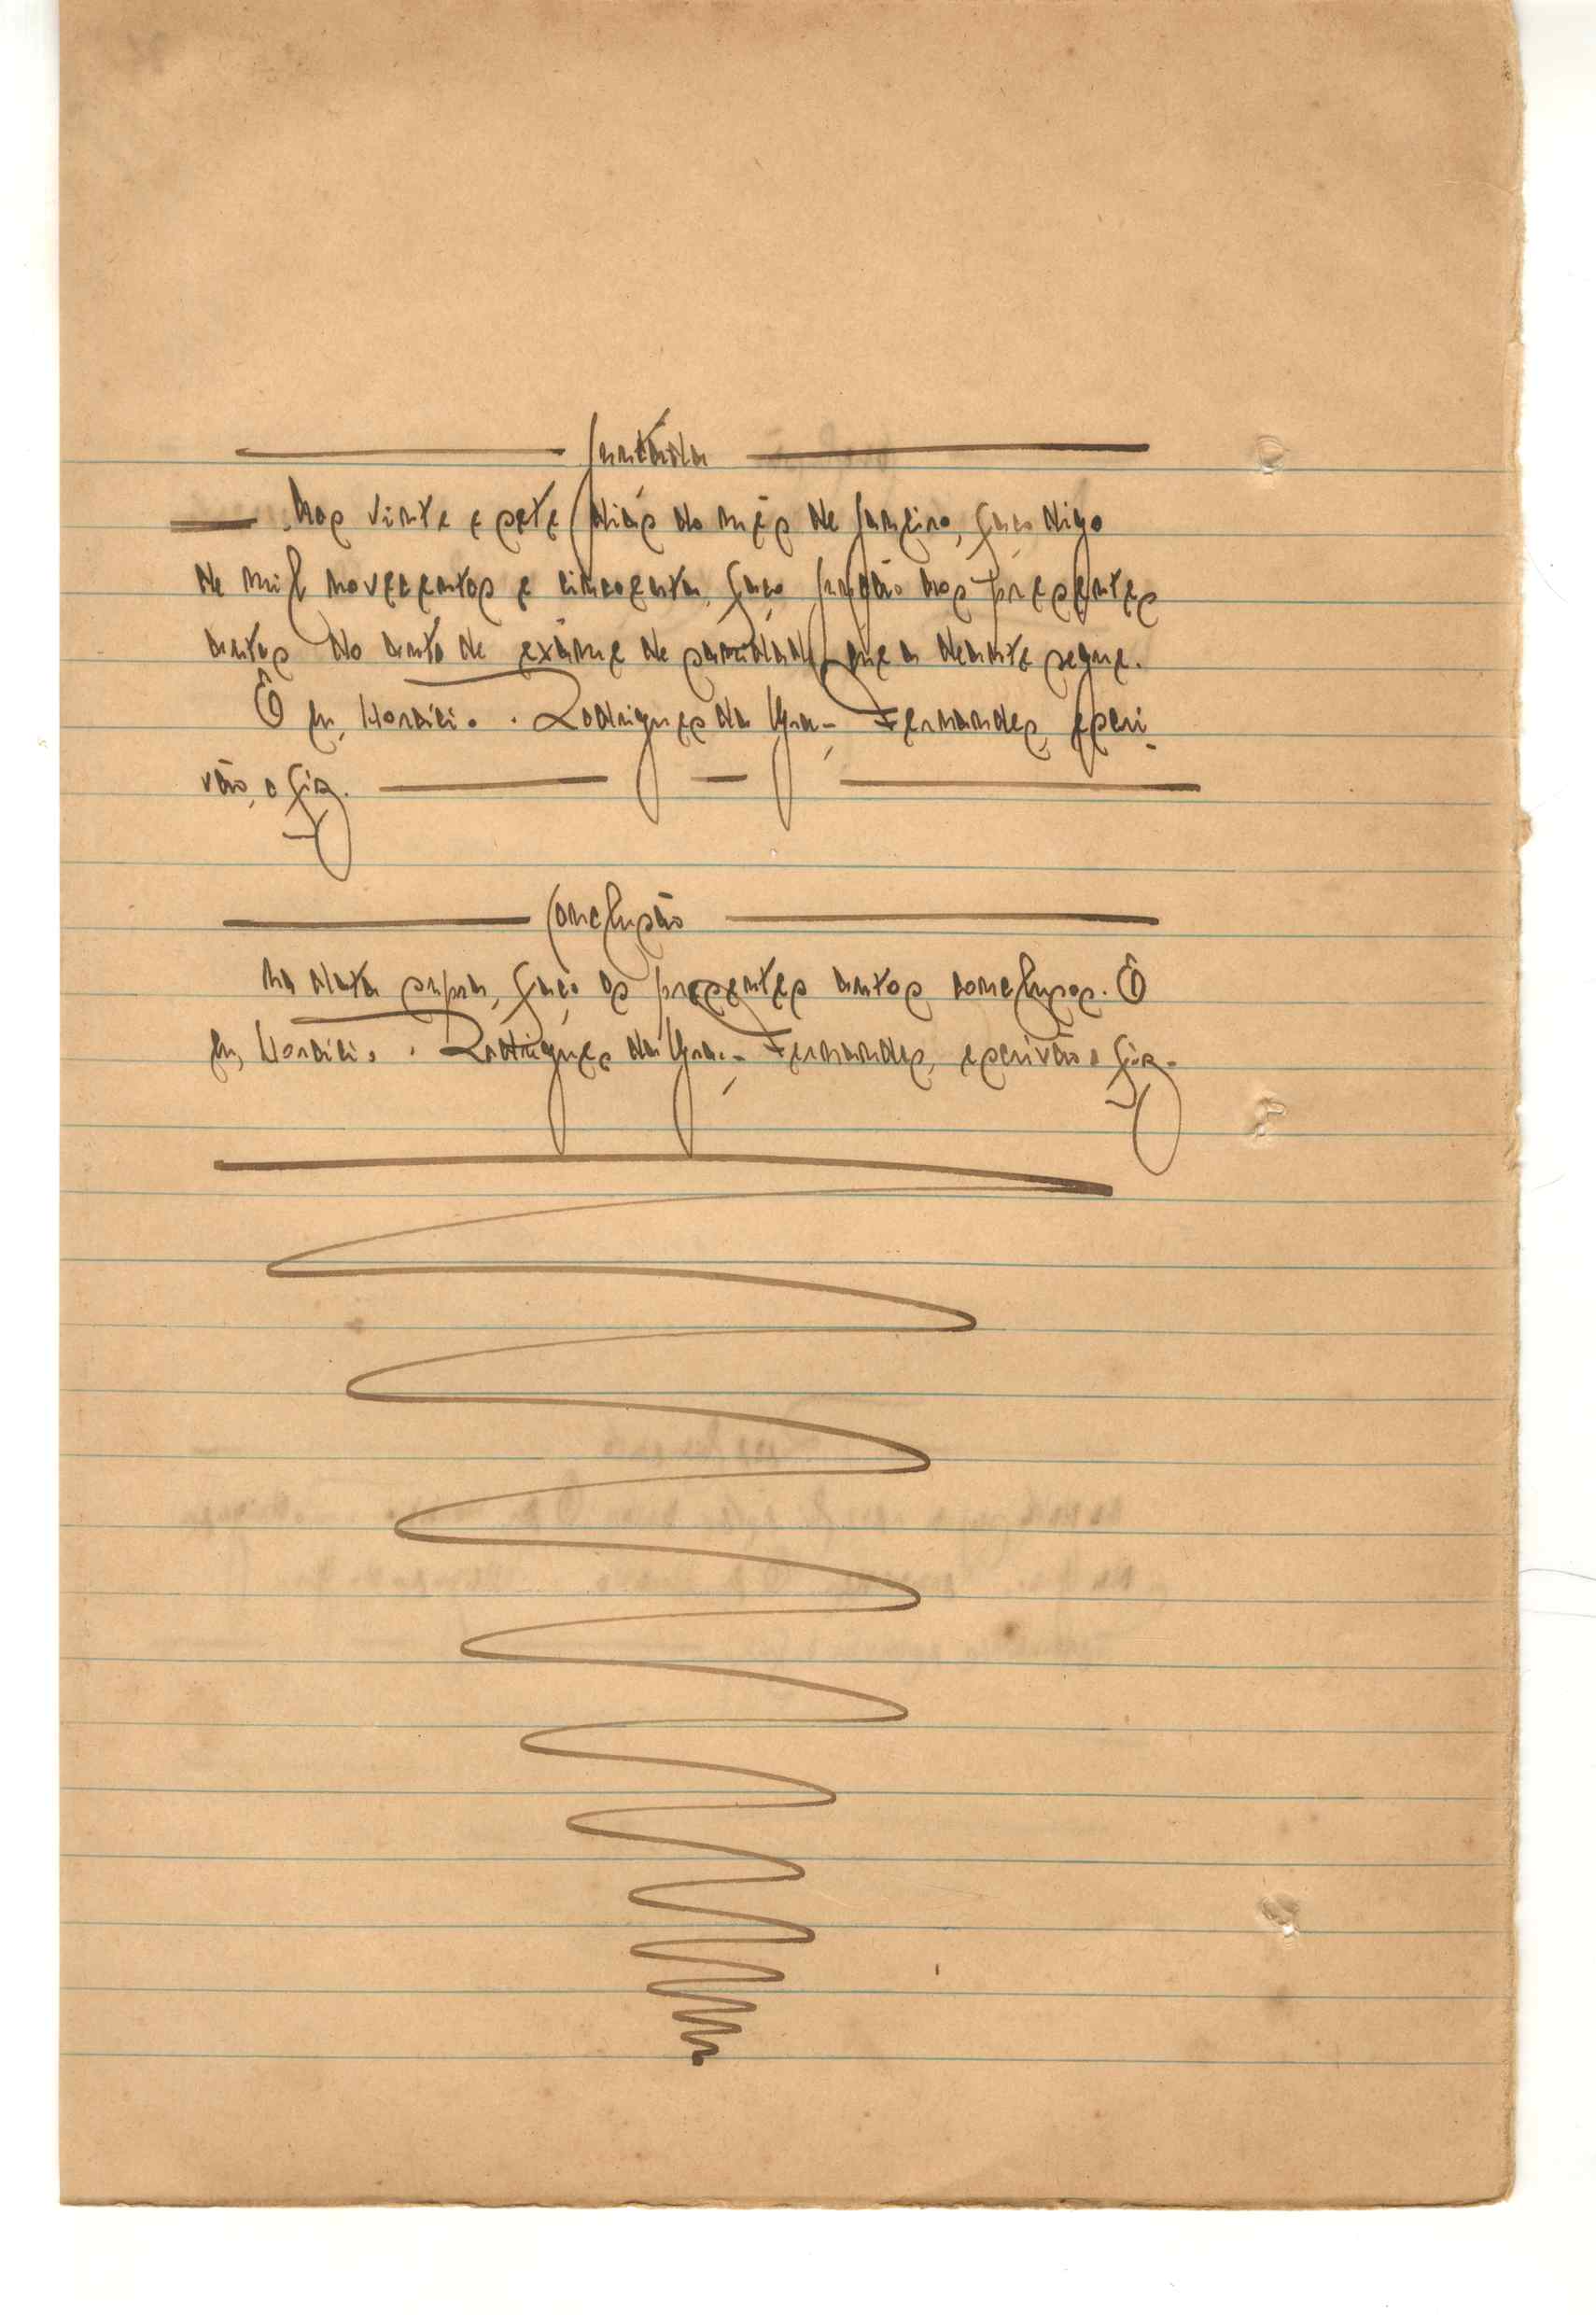 Juntada
Aos vinte e sete dias do mês de Janeiro, faço digo
de mil novecentos e cincoenta, faço junção aos presentes
autos do auto de exame de sanidade que a deante segue.
E eu, Horacio Rodrigues da Fernandes, escri-
vão, o fiz.
Conclusão
Na data supra, faço os presentes autos conclusos. E
eu, Horacio Rodrigues da Fernandes, escrivão o fiz.